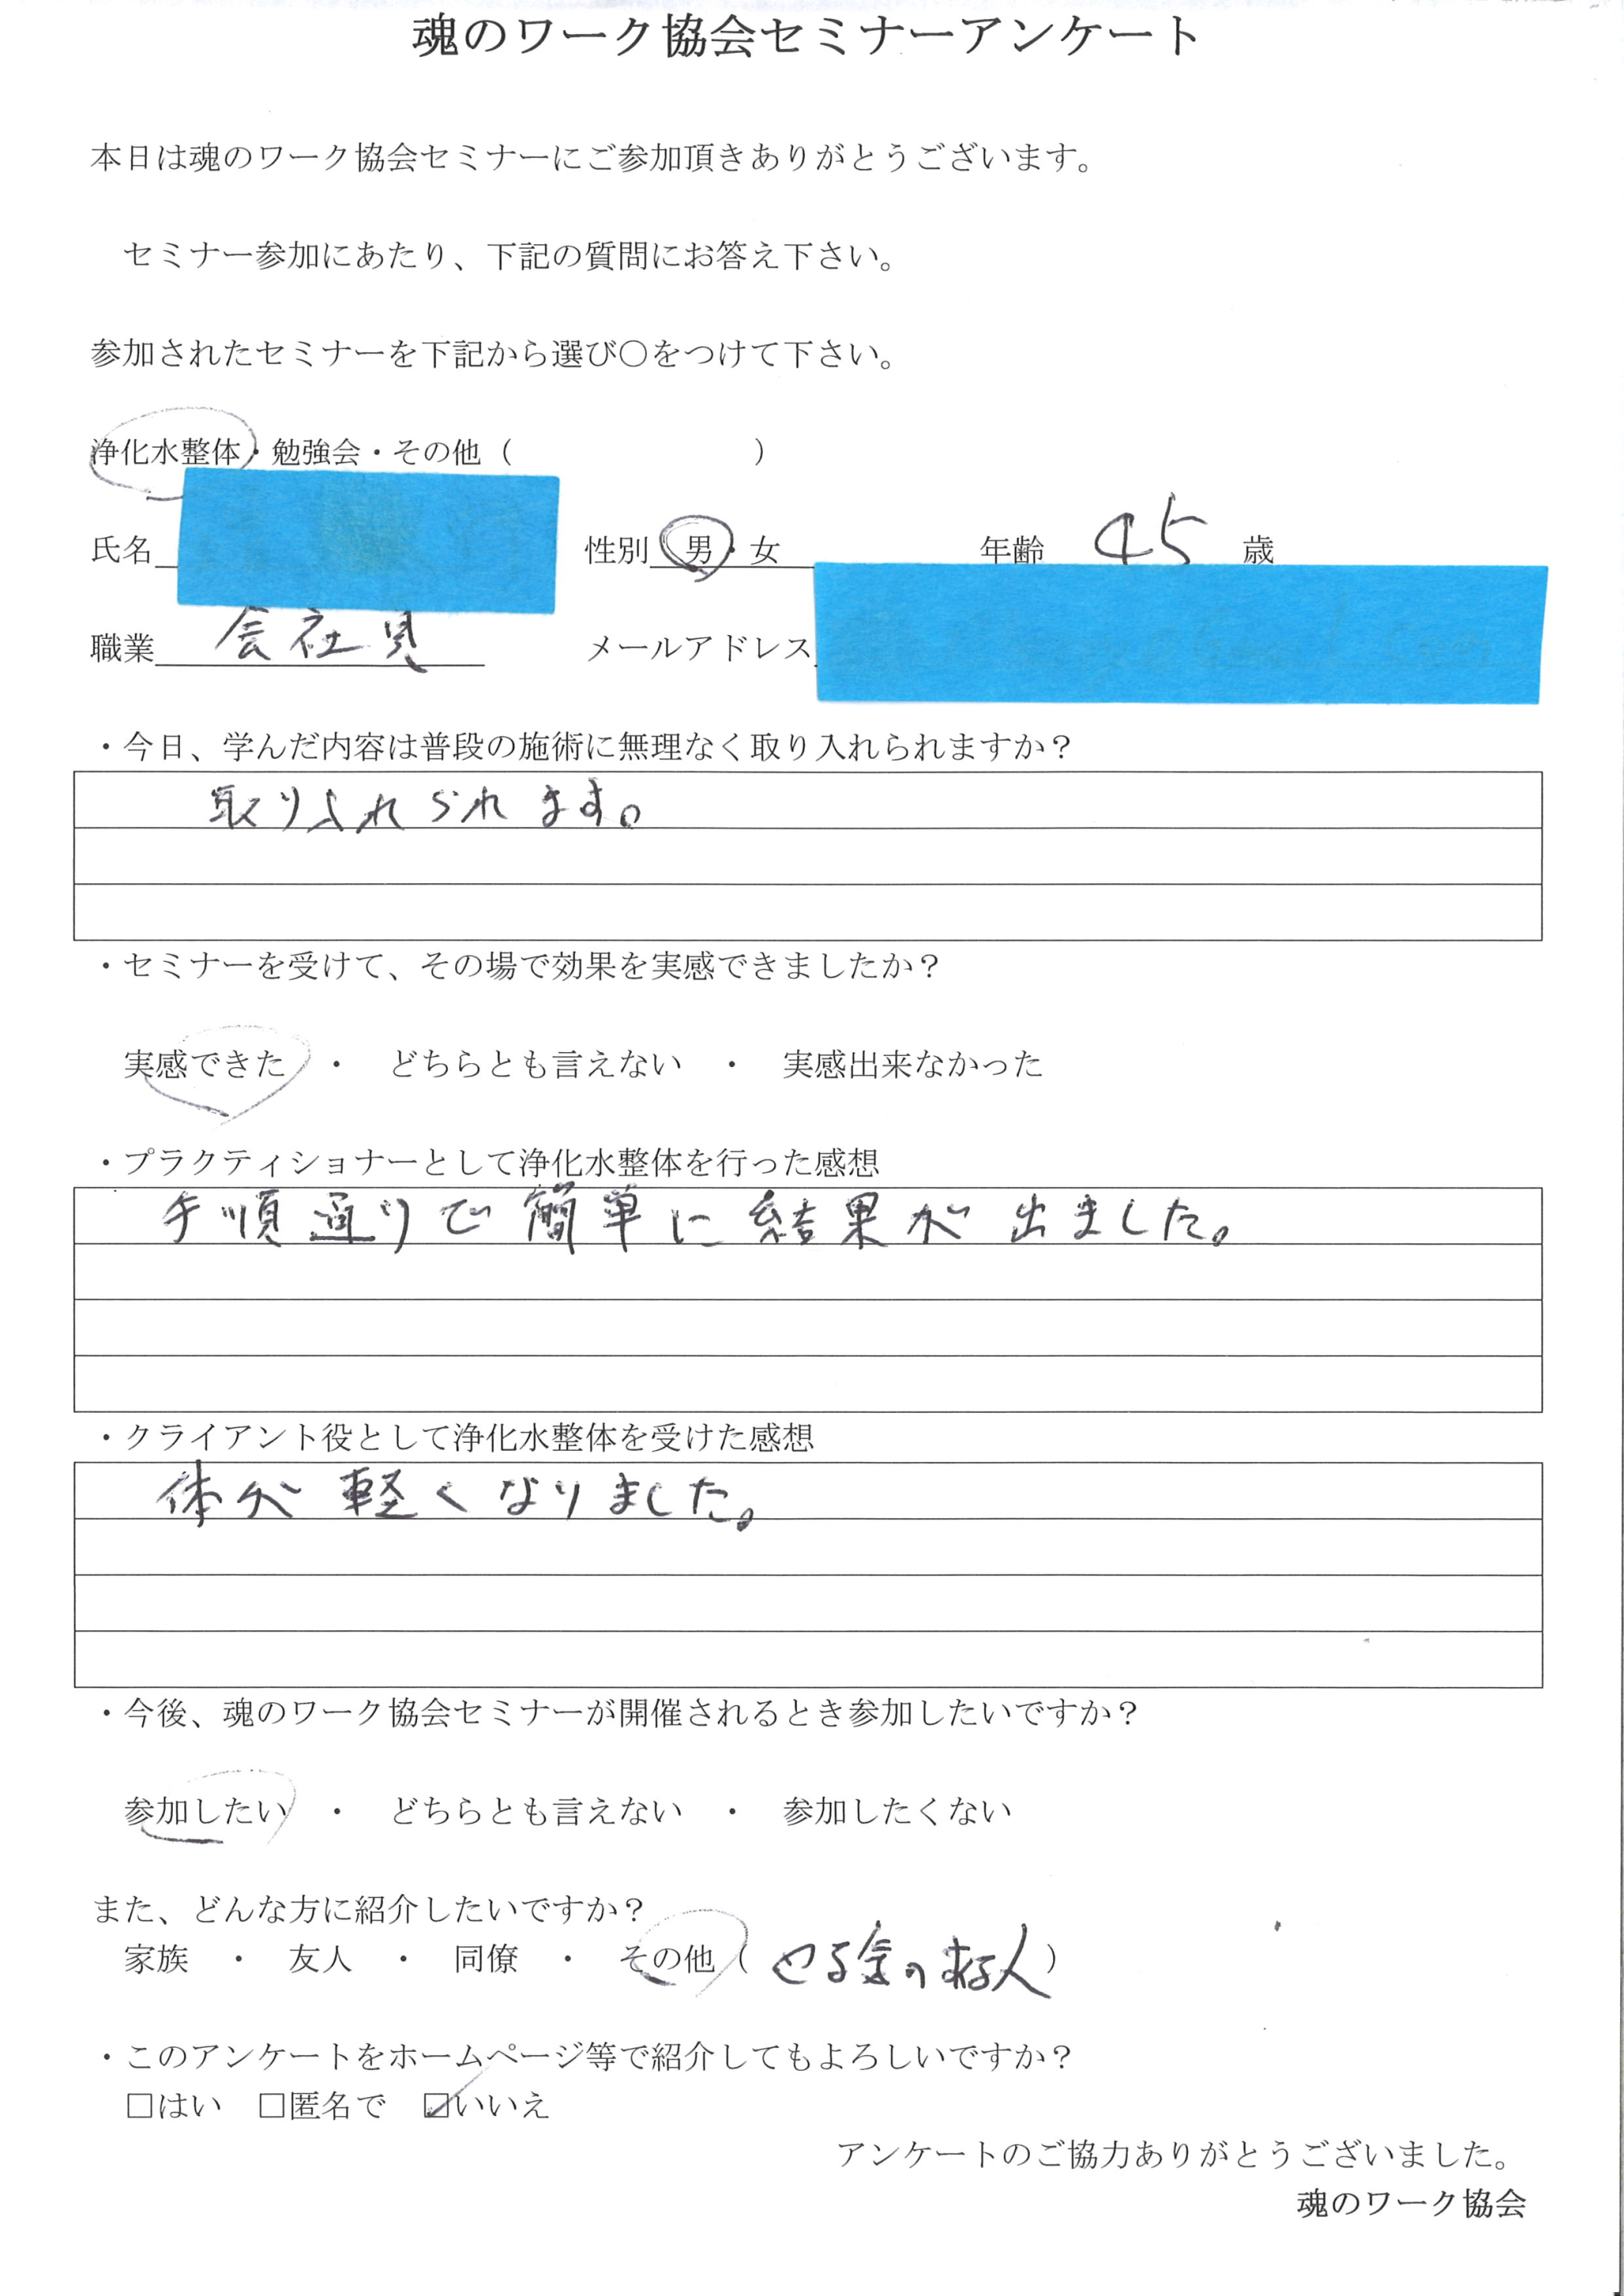 魂のワーク協会セミナーアンケート
本日は魂のワーク協会セミナーにご参加頂きありがとうございます。
セミナー参加にあたり、下記の質問にお答え下さい。
参加されたセミナーを下記から選び〇をつけて下さい。
浄化水整体・勉強会・その他（　　　　　　　）
氏名 性別 男・女 年齢 45 歳
職業 会社員 メールアドレス
・今日、学んだ内容は普段の施術に無理なく取り入れられますか？
取り入れられます。
・セミナーを受けて、その場で効果を実感できましたか？
実感できた ・ どちらとも言えない ・ 実感出来なかった
・プラクティショナーとして浄化水整体を行った感想
手順通りで簡単に結果が出ました。
・クライアント役として浄化水整体を受けた感想
体が軽くなりました。
・今後、魂のワーク協会セミナーが開催されるとき参加したいですか？
参加したい ・ どちらとも言えない ・ 参加したくない
また、どんな方に紹介したいですか？
家族 ・ 友人 ・ 同僚 ・ その他（やる気の有る人）
・このアンケートをホームページ等で紹介してもよろしいですか？
□はい □匿名で ☑いいえ
アンケートのご協力ありがとうございました。
魂のワーク協会